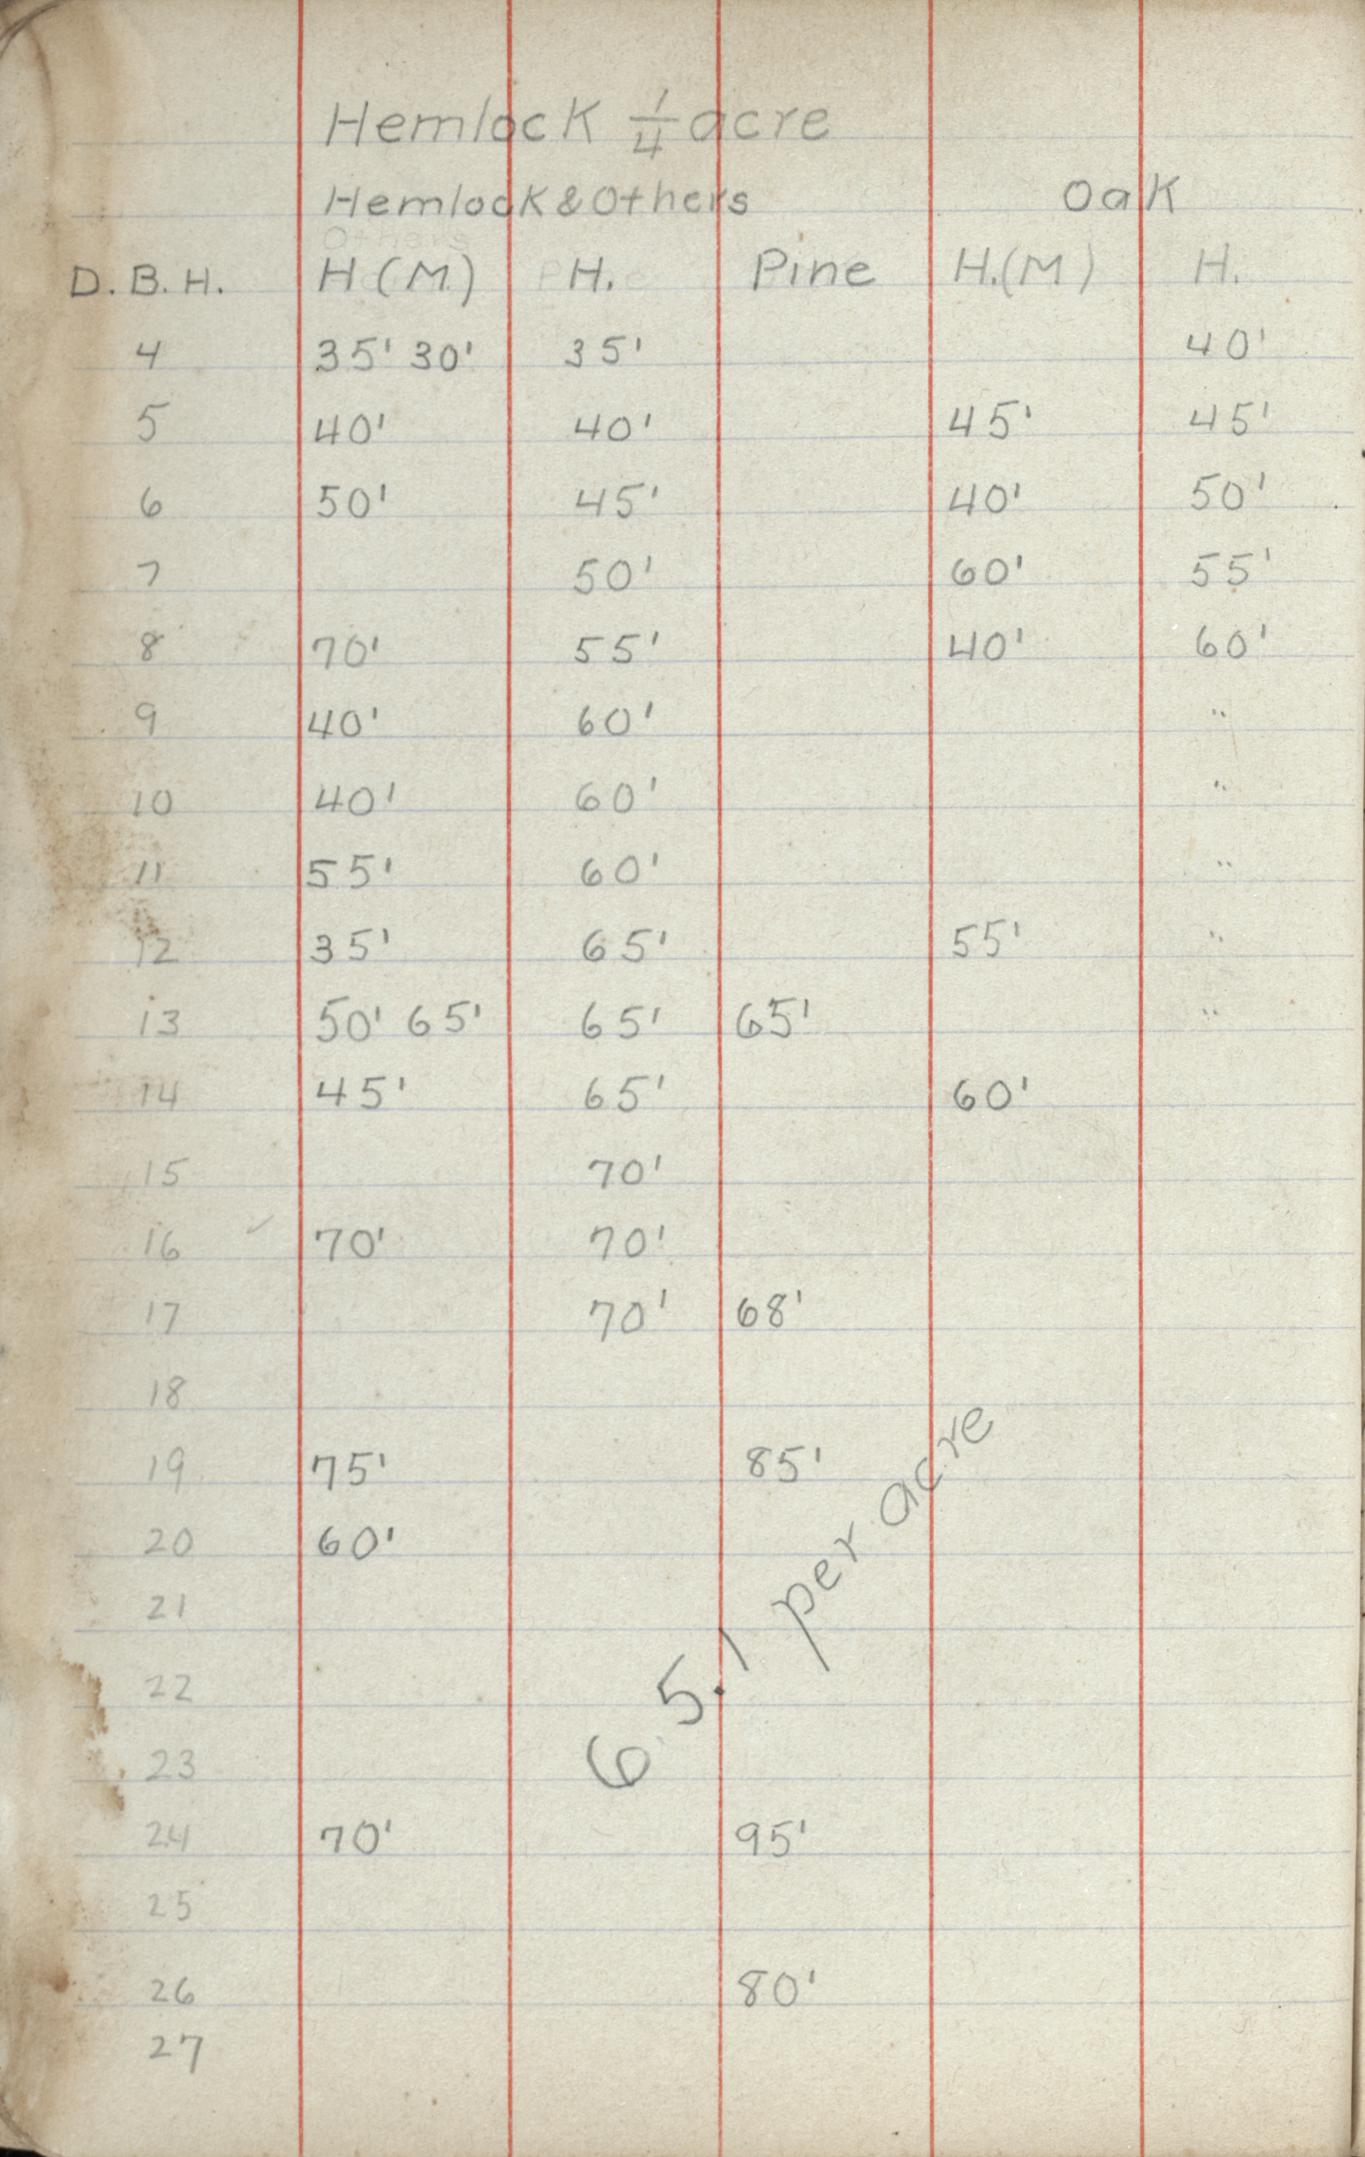 Hemlock 1/4 acre
Hemlock & Others Oak
Others
D. B. H. H (M) H. Pine H. (M) H.
4 35' 30' 35' 40'
5 40' 40' 45' 45'
6 50' 45' 40' 50'
7 50' 60' 55'
8 70' 55' 40' 60'
9 40' 60' "
10 40' 60' "
11 55' 60' "
12 35' 65' 55' "
13 50' 65' 65' 65' "
14 45' 65' 60'
15 70'
16 70' 70'
17 70' 68'
18
19 75' 85'
20 60'
21
22
23
24 70' 95'
25
26 80'
27
65.1 per acre